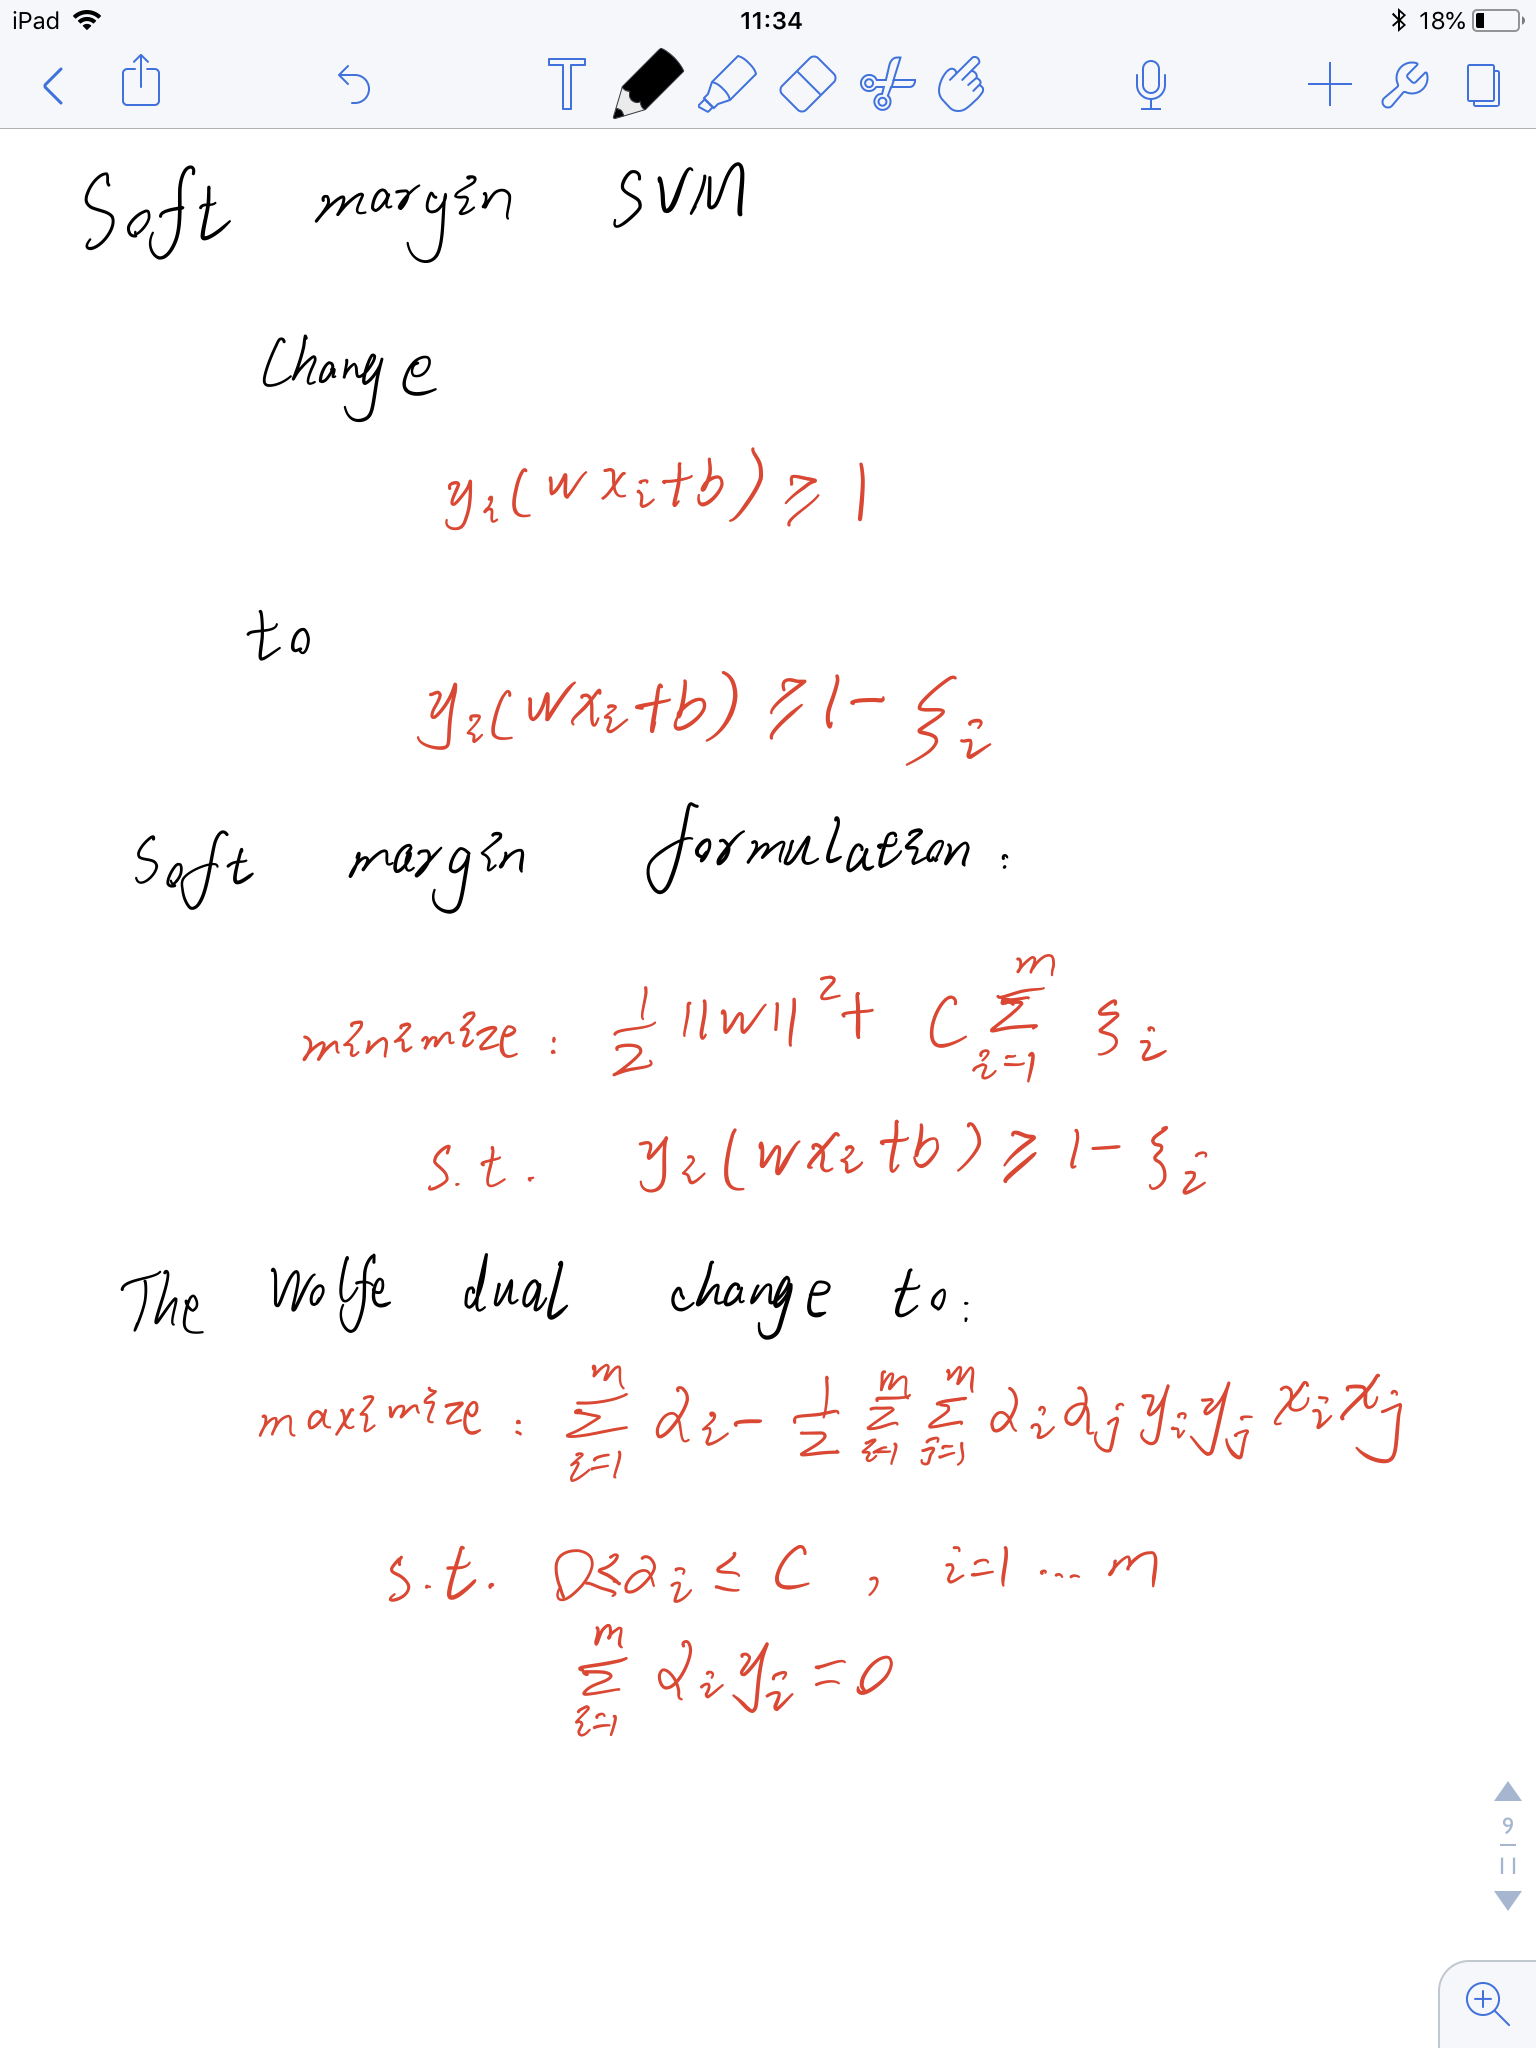 iPad 11:34 18%
T
Soft margin SVM
Change
yᵢ(wxᵢ+b) ≥ 1
to
yᵢ(wxᵢ+b) ≥ 1 - ξᵢ
Soft margin formulation:
minimize: 1/2 ||w||² + C Σᵢ₌₁ᵐ ξᵢ
s.t. yᵢ(wxᵢ+b) ≥ 1 - ξᵢ
The Wolfe dual change to:
maximize: Σᵢ₌₁ᵐ αᵢ - 1/2 Σᵢ₌₁ᵐ Σⱼ₌₁ᵐ αᵢαⱼyᵢyⱼxᵢxⱼ
s.t. 0≤αᵢ≤C, i=1...m
Σᵢ₌₁ᵐ αᵢyᵢ=0
9
11